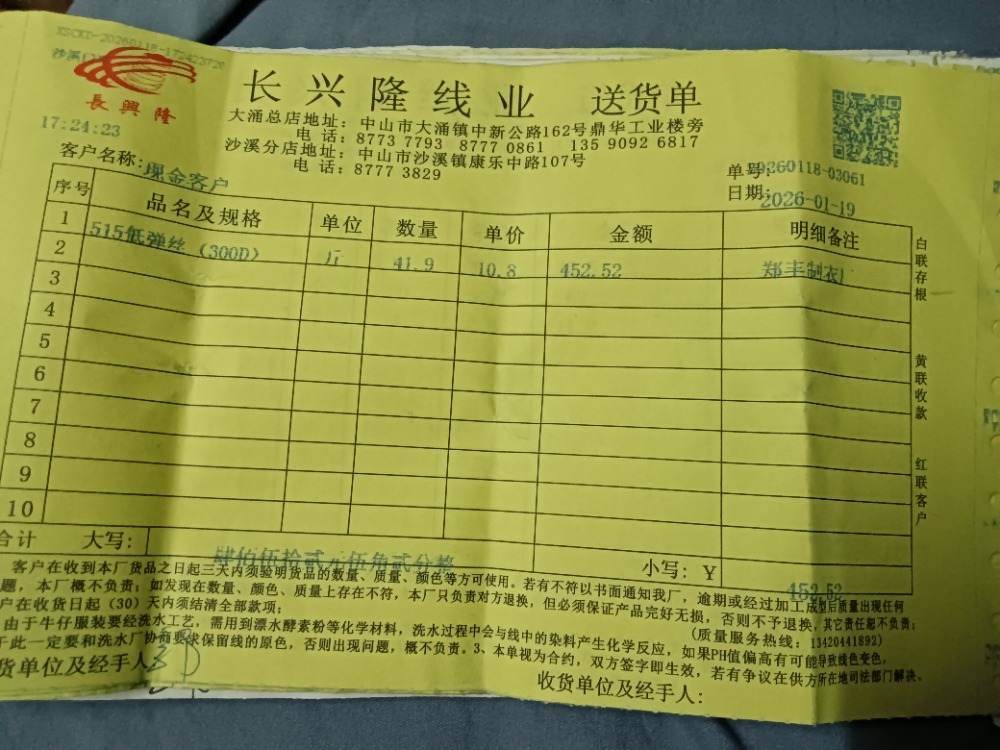 XSCKT-20260118-172423720
沙溪
長興隆
长兴隆线业 送货单
17:24:23
大涌总店地址：中山市大涌镇中新公路162号鼎华工业楼旁
电话：8773 7793 8777 0861 135 9092 6817
沙溪分店地址：中山市沙溪镇康乐中路107号
电话：8777 3829
客户名称：现金客户
单号：20260118-03061
日期：2026-01-19
序号 品名及规格 单位 数量 单价 金额 明细备注
1 515低弹丝（300D） 斤 41.9 10.8 452.52 郑丰制衣厂
2
3
4
5
6
7
8
9
10
合计 大写： 肆佰伍拾贰元伍角贰分整 小写：￥ 452.52
白联存根
黄联收款
红联客户
客户在收到本厂货品之日起三天内须验明货品的数量、质量、颜色等方可使用。若有不符以书面通知我厂，逾期或经过加工成型后质量出现任何
题，本厂概不负责；如发现在数量、颜色、质量上存在不符，本厂只负责对方退换，但必须保证产品完好无损，否则不予退换，其它责任恕不负责；
户在收货日起（30）天内须结清全部款项；
（质量服务热线：13420441892）
由于牛仔服装要经洗水工艺，需用到漂水酵素粉等化学材料，洗水过程中会与线中的染料产生化学反应，如果PH值偏高有可能导致线色变色，
于此一定要和洗水厂协商要求保留线的原色，否则出现问题，概不负责。3、本单视为合约，双方签字即生效，若有争议在供方所在地司法部门解决。
货单位及经手人：
收货单位及经手人：